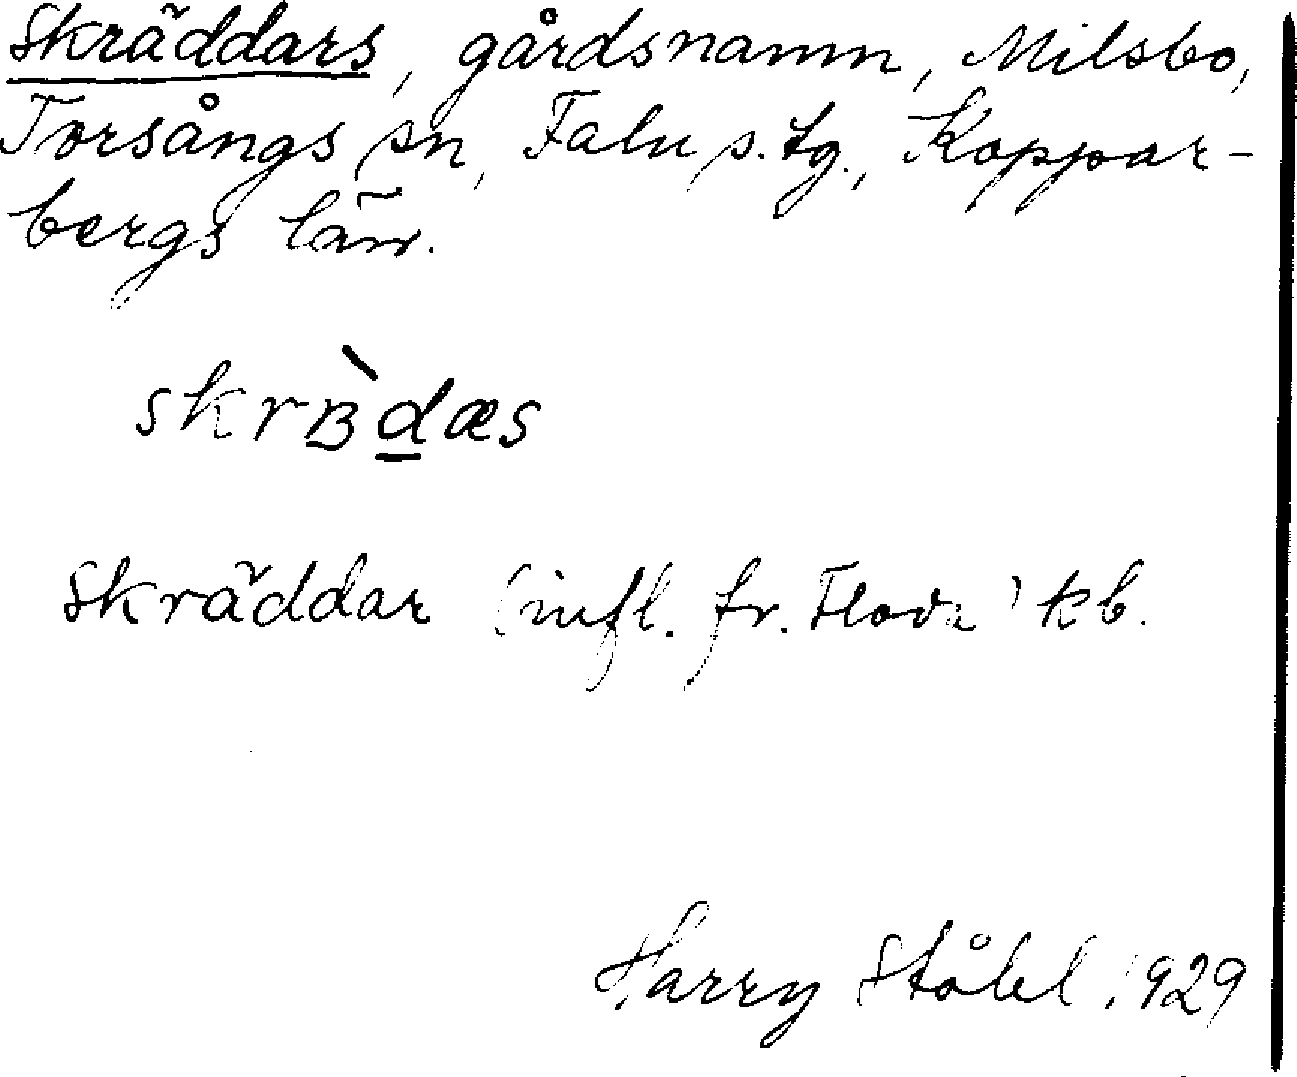 Skräddars, gårdsnamn, Milsbo,
Torsångs sn, Falu s. tg., Koppar-
bergs län.
skrʙ̀d̲æs
Skräddar (infl. fr. Floda) kb.
Harry Ståhl 1929